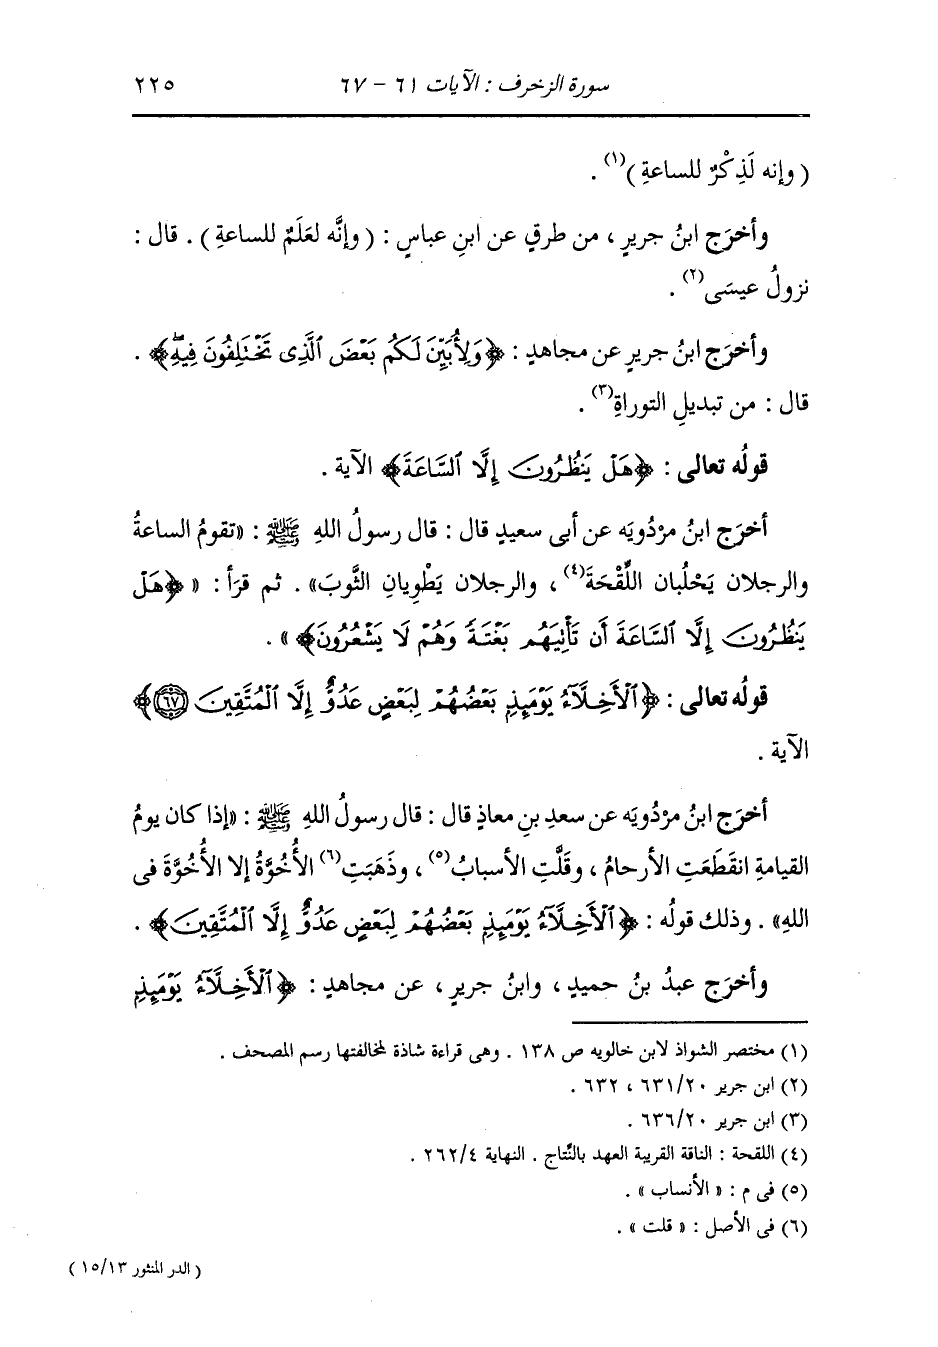 سورة الزخرف : الآيات ٦١ - ٦٧ ٢٢٥
( وإنه لَذِكْرٌ للساعةِ )(١) .
وأخرَج ابنُ جريرٍ ، من طرقٍ عن ابنِ عباسٍ : ( وإنَّه لعَلَمٌ للساعةِ ) . قال :
نزولُ عيسَى(٢) .
وأخرَج ابنُ جريرٍ عن مجاهدٍ : ﴿وَلِأُبَيِّنَ لَكُم بَعْضَ ٱلَّذِى تَخْتَلِفُونَ فِيهِۖ﴾ .
قال : من تبديلِ التوراةِ(٣) .
قولُه تعالى : ﴿هَلْ يَنظُرُونَ إِلَّا ٱلسَّاعَةَ﴾ الآية .
أخرَج ابنُ مرْدُويَه عن أبى سعيدٍ قال : قال رسولُ اللهِ ﷺ : «تقومُ الساعةُ
والرجلان يَحْلُبان اللِّقْحَةَ(٤) ، والرجلان يَطْوِيانِ الثَّوبَ» . ثم قرَأ : « ﴿هَلْ
يَنظُرُونَ إِلَّا ٱلسَّاعَةَ أَن تَأْتِيَهُم بَغْتَةً وَهُمْ لَا يَشْعُرُونَ﴾ » .
قولُه تعالى : ﴿ٱلْأَخِلَّآءُ يَوْمَئِذٍۭ بَعْضُهُمْ لِبَعْضٍ عَدُوٌّ إِلَّا ٱلْمُتَّقِينَ ٦٧﴾
الآية .
أخرَج ابنُ مرْدُويَه عن سعدِ بنِ معاذٍ قال : قال رسولُ اللهِ ﷺ : «إذا كان يومُ
القيامةِ انقَطَعَتِ الأرحامُ ، وقَلَّتِ الأسبابُ(٥) ، وذَهَبَتِ(٦) الأُخُوَّةُ إلا الأُخُوَّةَ فى
اللهِ» . وذلك قولُه : ﴿ٱلْأَخِلَّآءُ يَوْمَئِذٍۭ بَعْضُهُمْ لِبَعْضٍ عَدُوٌّ إِلَّا ٱلْمُتَّقِينَ﴾ .
وأخرَج عبدُ بنُ حميدٍ ، وابنُ جريرٍ ، عن مجاهدٍ : ﴿ٱلْأَخِلَّآءُ يَوْمَئِذٍۭ
(١) مختصر الشواذ لابن خالويه ص ١٣٨ . وهى قراءة شاذة لمخالفتها رسم المصحف .
(٢) ابن جرير ٢٠/ ٦٣١ ، ٦٣٢ .
(٣) ابن جرير ٢٠/ ٦٣٦ .
(٤) اللقحة : الناقة القريبة العهد بالنَّتاج . النهاية ٤/ ٢٦٢ .
(٥) فى م : « الأنساب » .
(٦) فى الأصل : « قلت » .
( الدر المنثور ١٥/١٣ )